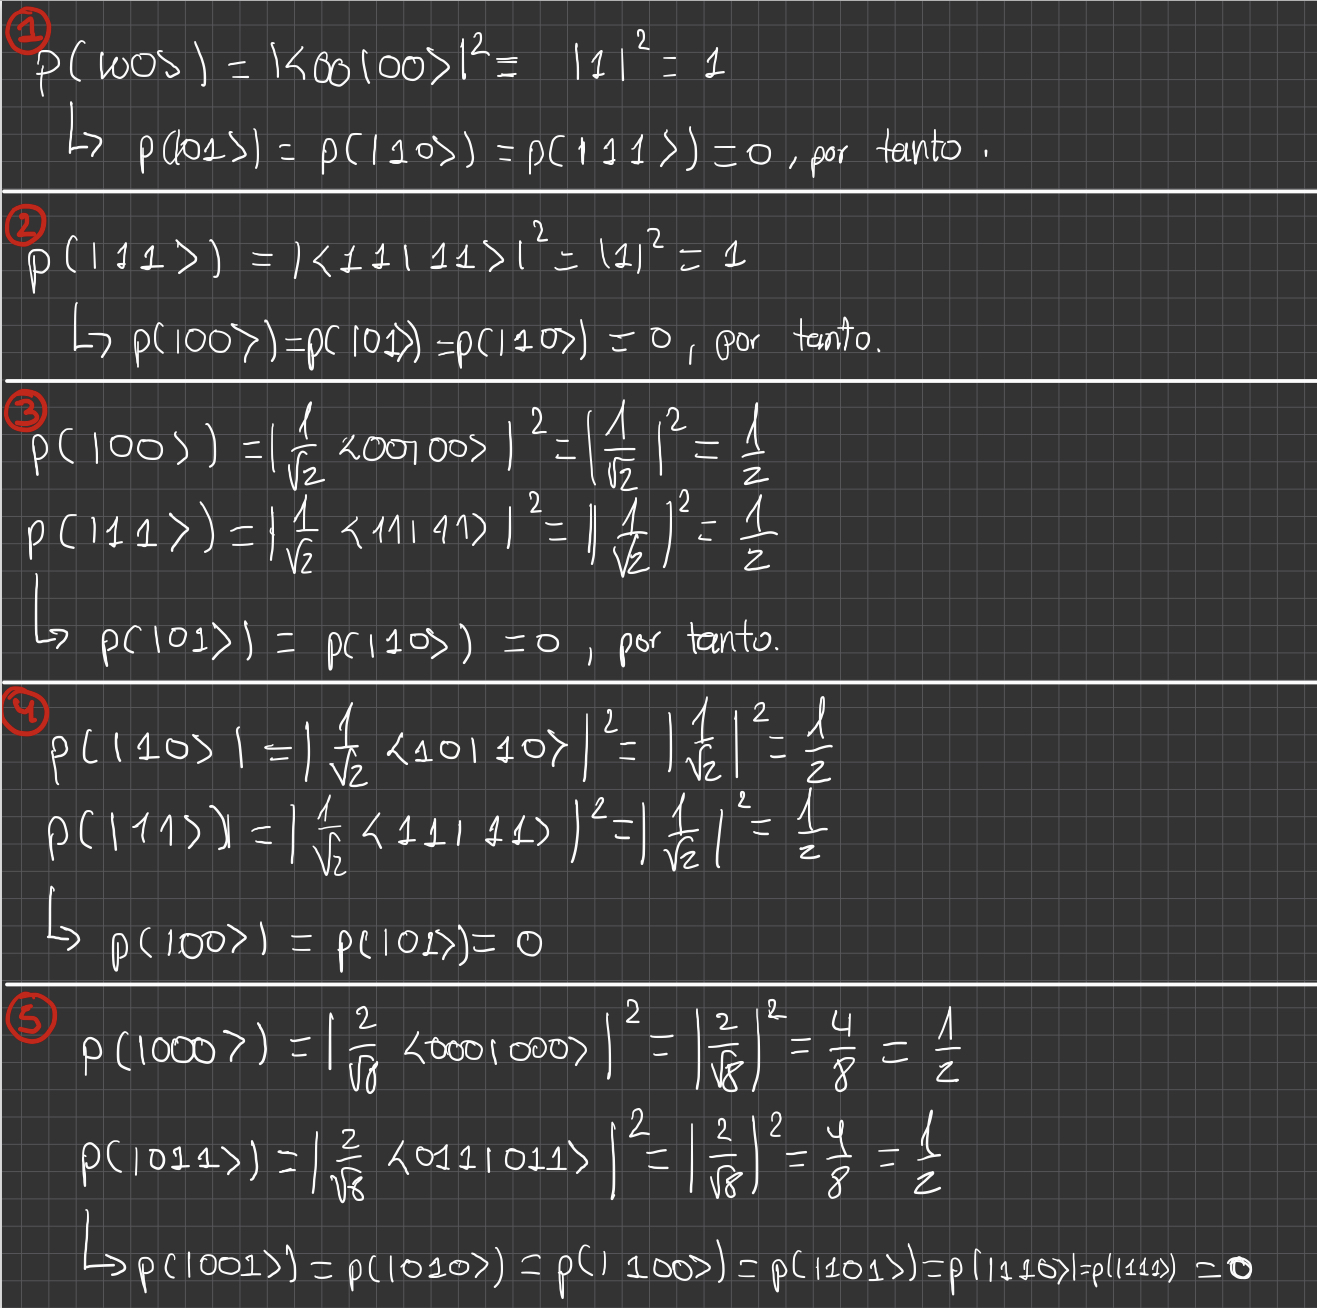 1
p(|00>) = |<00|00>|² = |1|² = 1
↳ p(|01>) = p(|10>) = p(|11>) = 0, por tanto.
2
p(|11>) = |<11|11>|² = |1|² = 1
↳ p(|00>) = p(|01>) = p(|10>) = 0, por tanto.
3
p(|00>) = |1/√2 <00|00>|² = |1/√2|² = 1/2
p(|11>) = |1/√2 <11|11>|² = |1/√2|² = 1/2
↳ p(|01>) = p(|10>) = 0, por tanto.
4
p(|10>| = |1/√2 <10|10>|² = |1/√2|² = 1/2
p(|11>) = |1/√2 <11|11>|² = |1/√2|² = 1/2
↳ p(|00>) = p(|01>) = 0
5
p(|000>) = |2/√8 <000|000>|² = |2/√8|² = 4/8 = 1/2
p(|011>) = |2/√8 <011|011>|² = |2/√8|² = 4/8 = 1/2
↳ p(|001>) = p(|010>) = p(|100>) = p(|101>) = p(|110>| = p(|111>) = 0